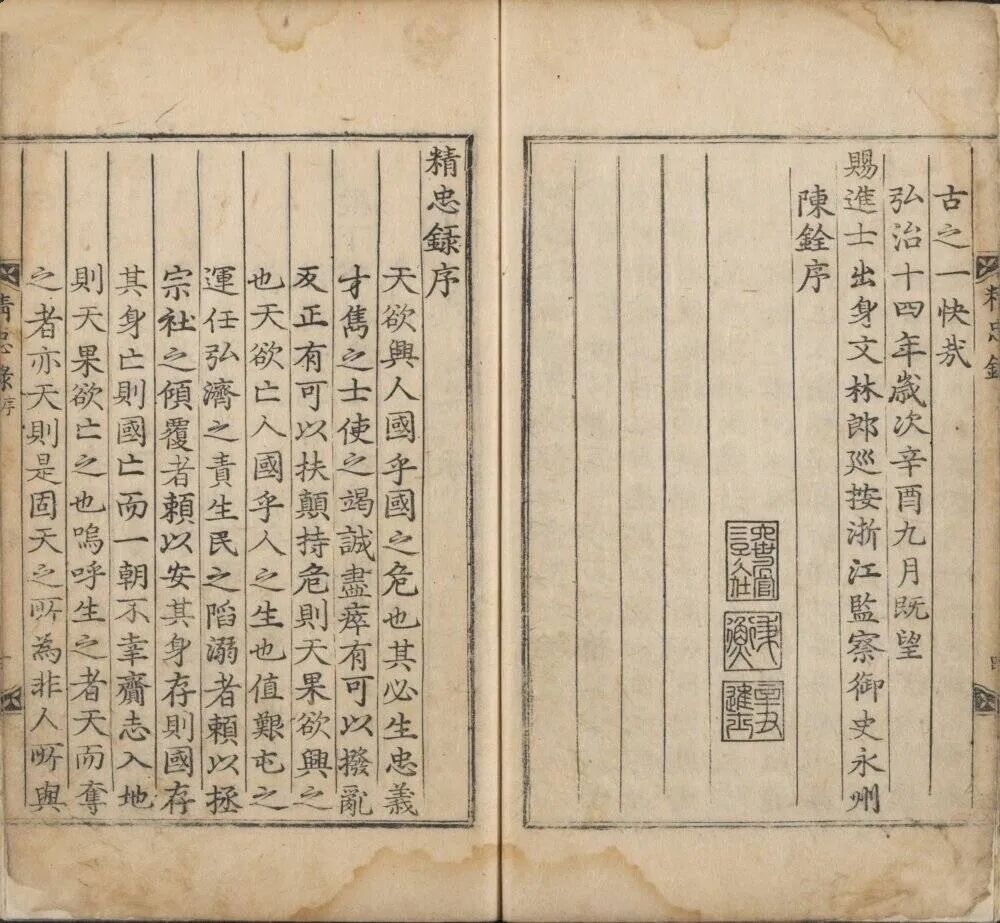 古之一快㢤
弘治十四年歲次辛酉九月既望
賜進士出身文林郎廵按浙江監察御史永州
陳銓序
精忠錄
精忠錄序
天欲興人國乎國之危也其必生忠義
才雋之士使之竭誠盡瘁有可以撥亂
反正有可以扶顛持危則天果欲興之
也天欲亡人國乎人之生也值艱屯之
運任弘濟之責生民之陷溺者頼以拯
宗社之傾覆者頼以安其身存則國存
其身亡則國亡而一朝不幸齎志入地
則天果欲亡之也嗚呼生之者天而奪
之者亦天則是固天之所為非人所與
精忠錄序